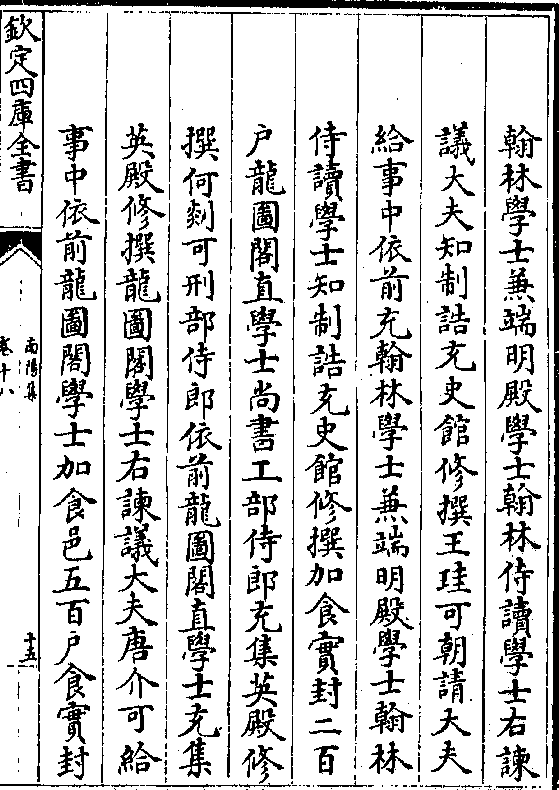 翰林學士兼端明殿學士翰林侍讀學士右諫
議大夫知制誥充史館修撰王珪可朝請大夫
給事中依前充翰林學士兼端明殿學士翰林
侍讀學士知制誥充史館修撰加食實封二百
户龍圖閣直學士尚書工部侍郎充集英殿修
撰何剡可刑部侍郎依前龍圖閣直學士充集
英殿修撰龍圖閣學士右諫議大夫唐介可給
事中依前龍圖閣學士加食邑五百户食實封
欽定四庫全書
南陽集
卷十八
十五